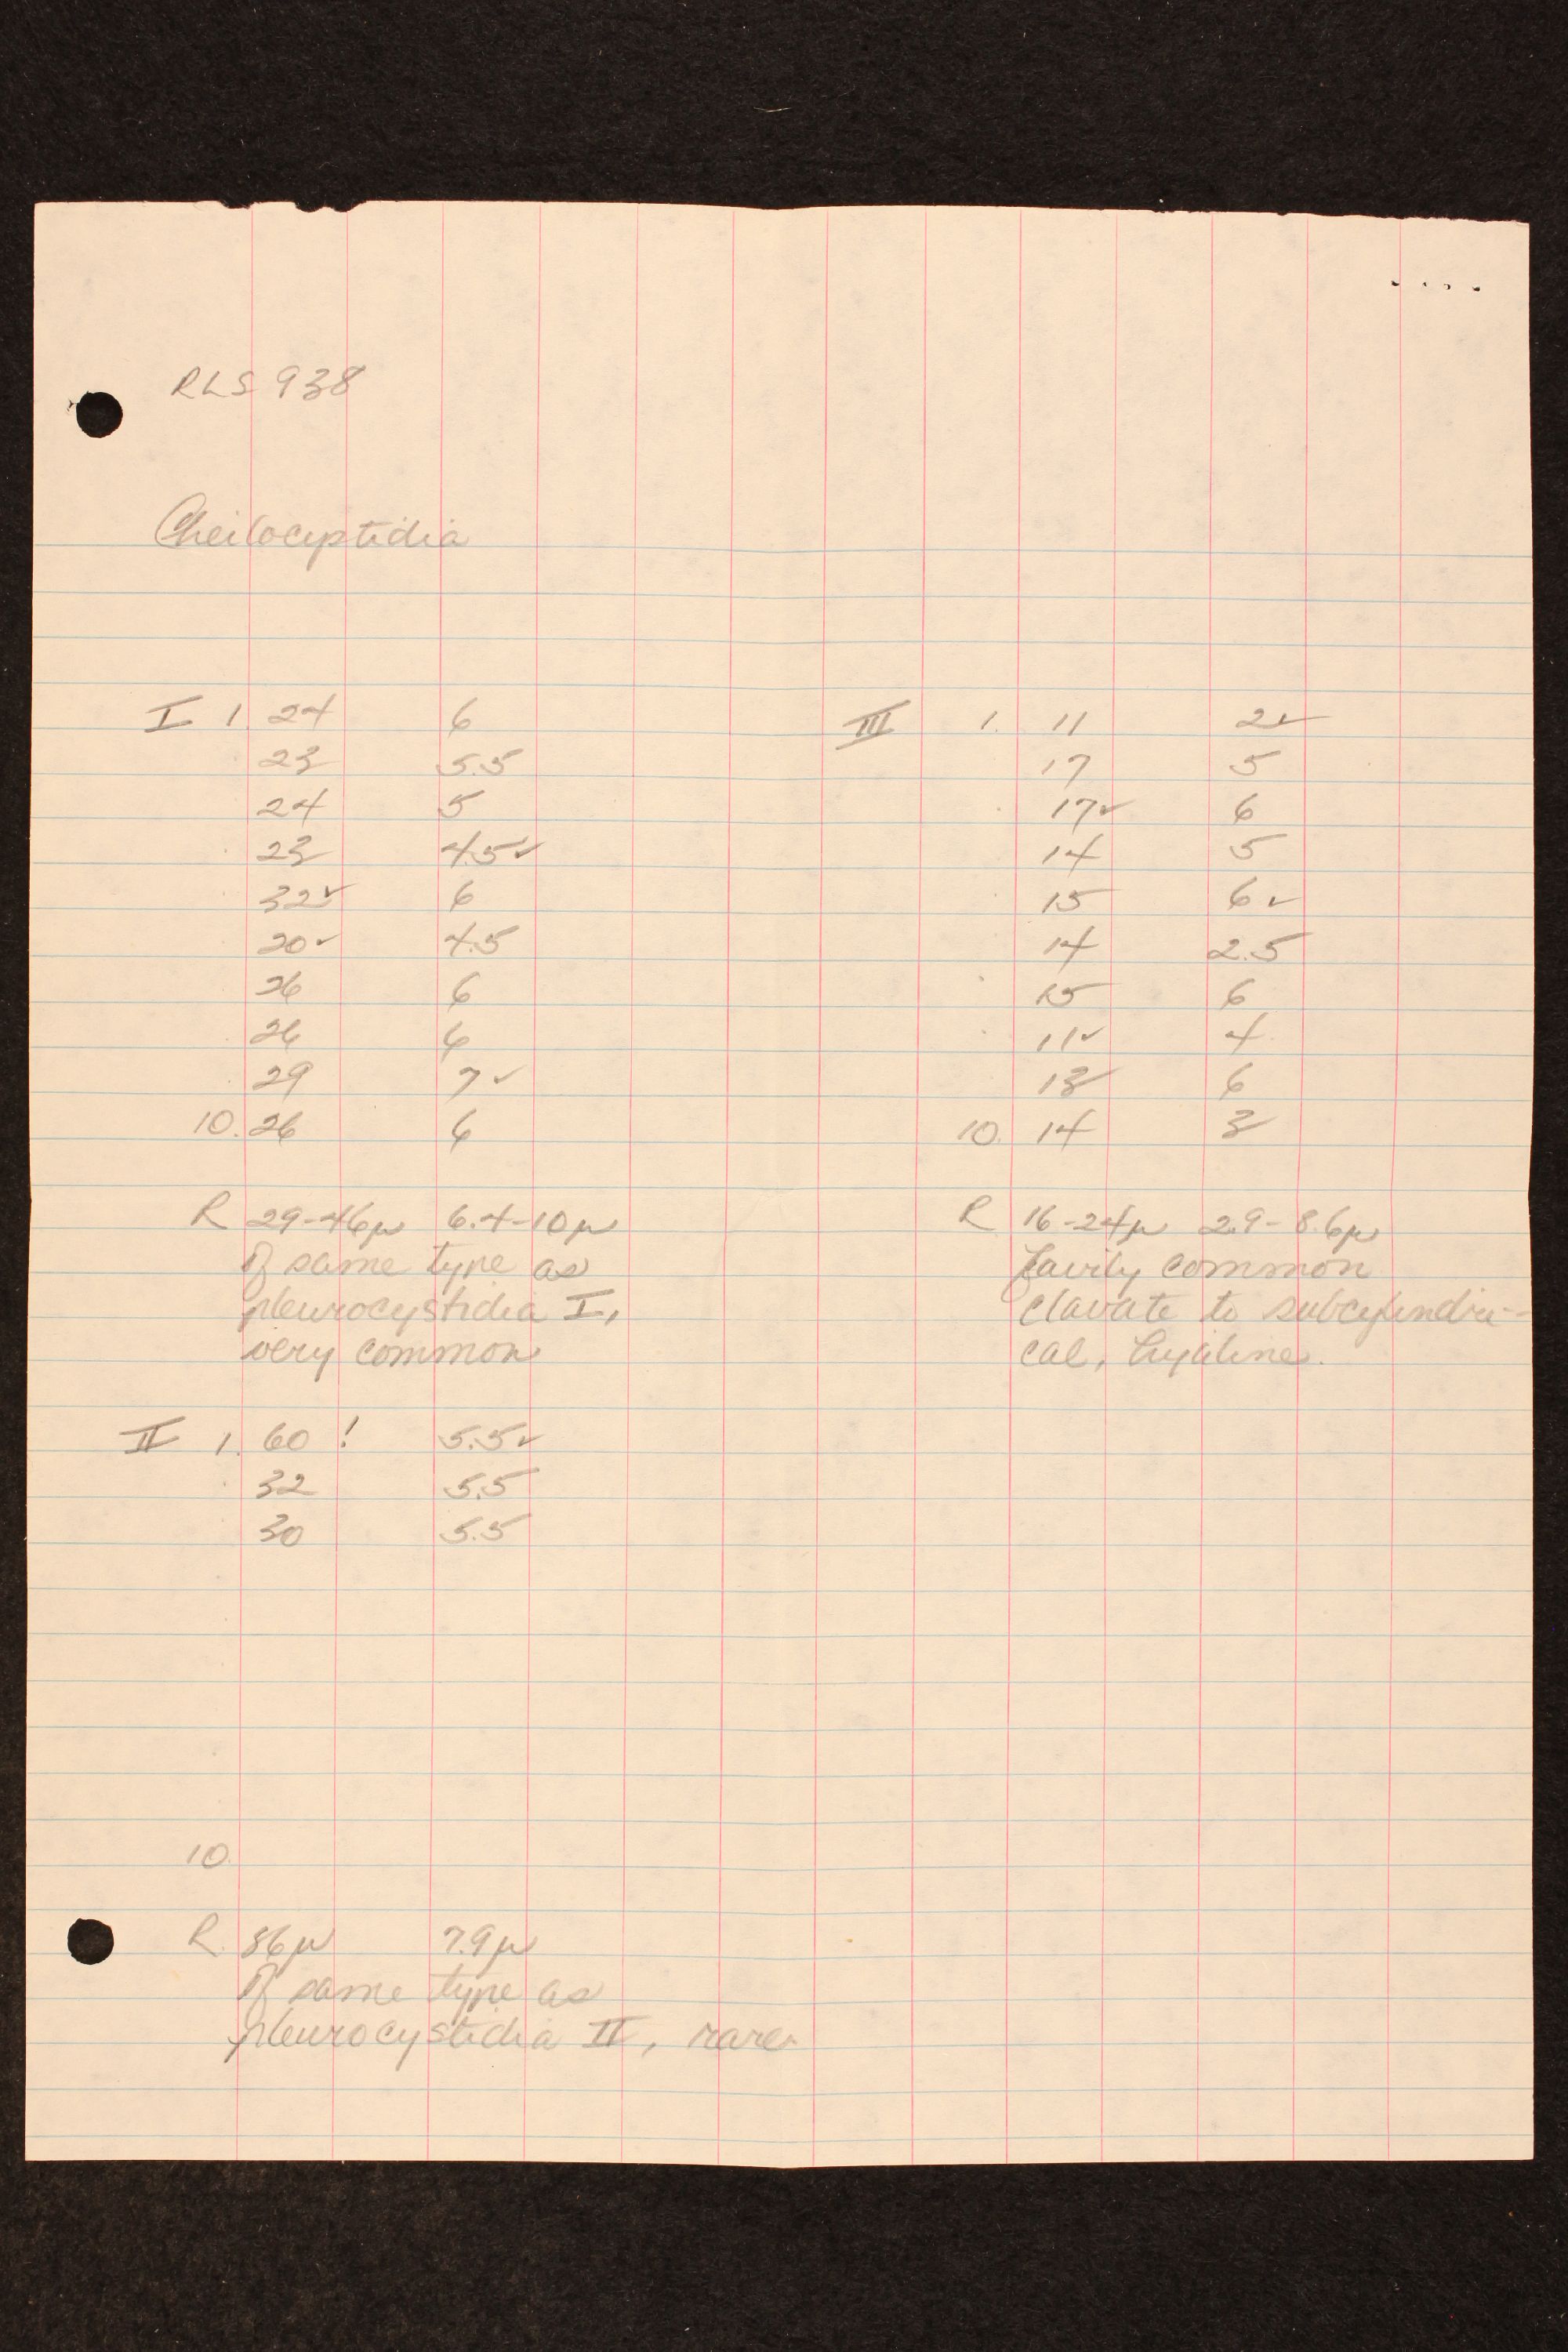 RLS 938
Cheilocystidia
I 1. 24 6
23 5.5
24 5
23 4.5✓
32✓ 6
20✓ 4.5
26 6
26 6
29 7✓
10. 26 6
R 29-46μ 6.4-10μ
Of same type as
pleurocystidia I,
very common
II 1. 60 ! 5.5✓
32 5.5
30 5.5
10.
R. 86μ 7.9μ
Of same type as
pleurocystidia II, rare.
III 1. 11 2✓
17 5
17✓ 6
14 5
15 6✓
14 2.5
15 6
11✓ 4
13 6
10. 14 3
R 16-24μ 2.9-8.6μ
Fairly common
clavate to subcylindri-
cal, hyaline.